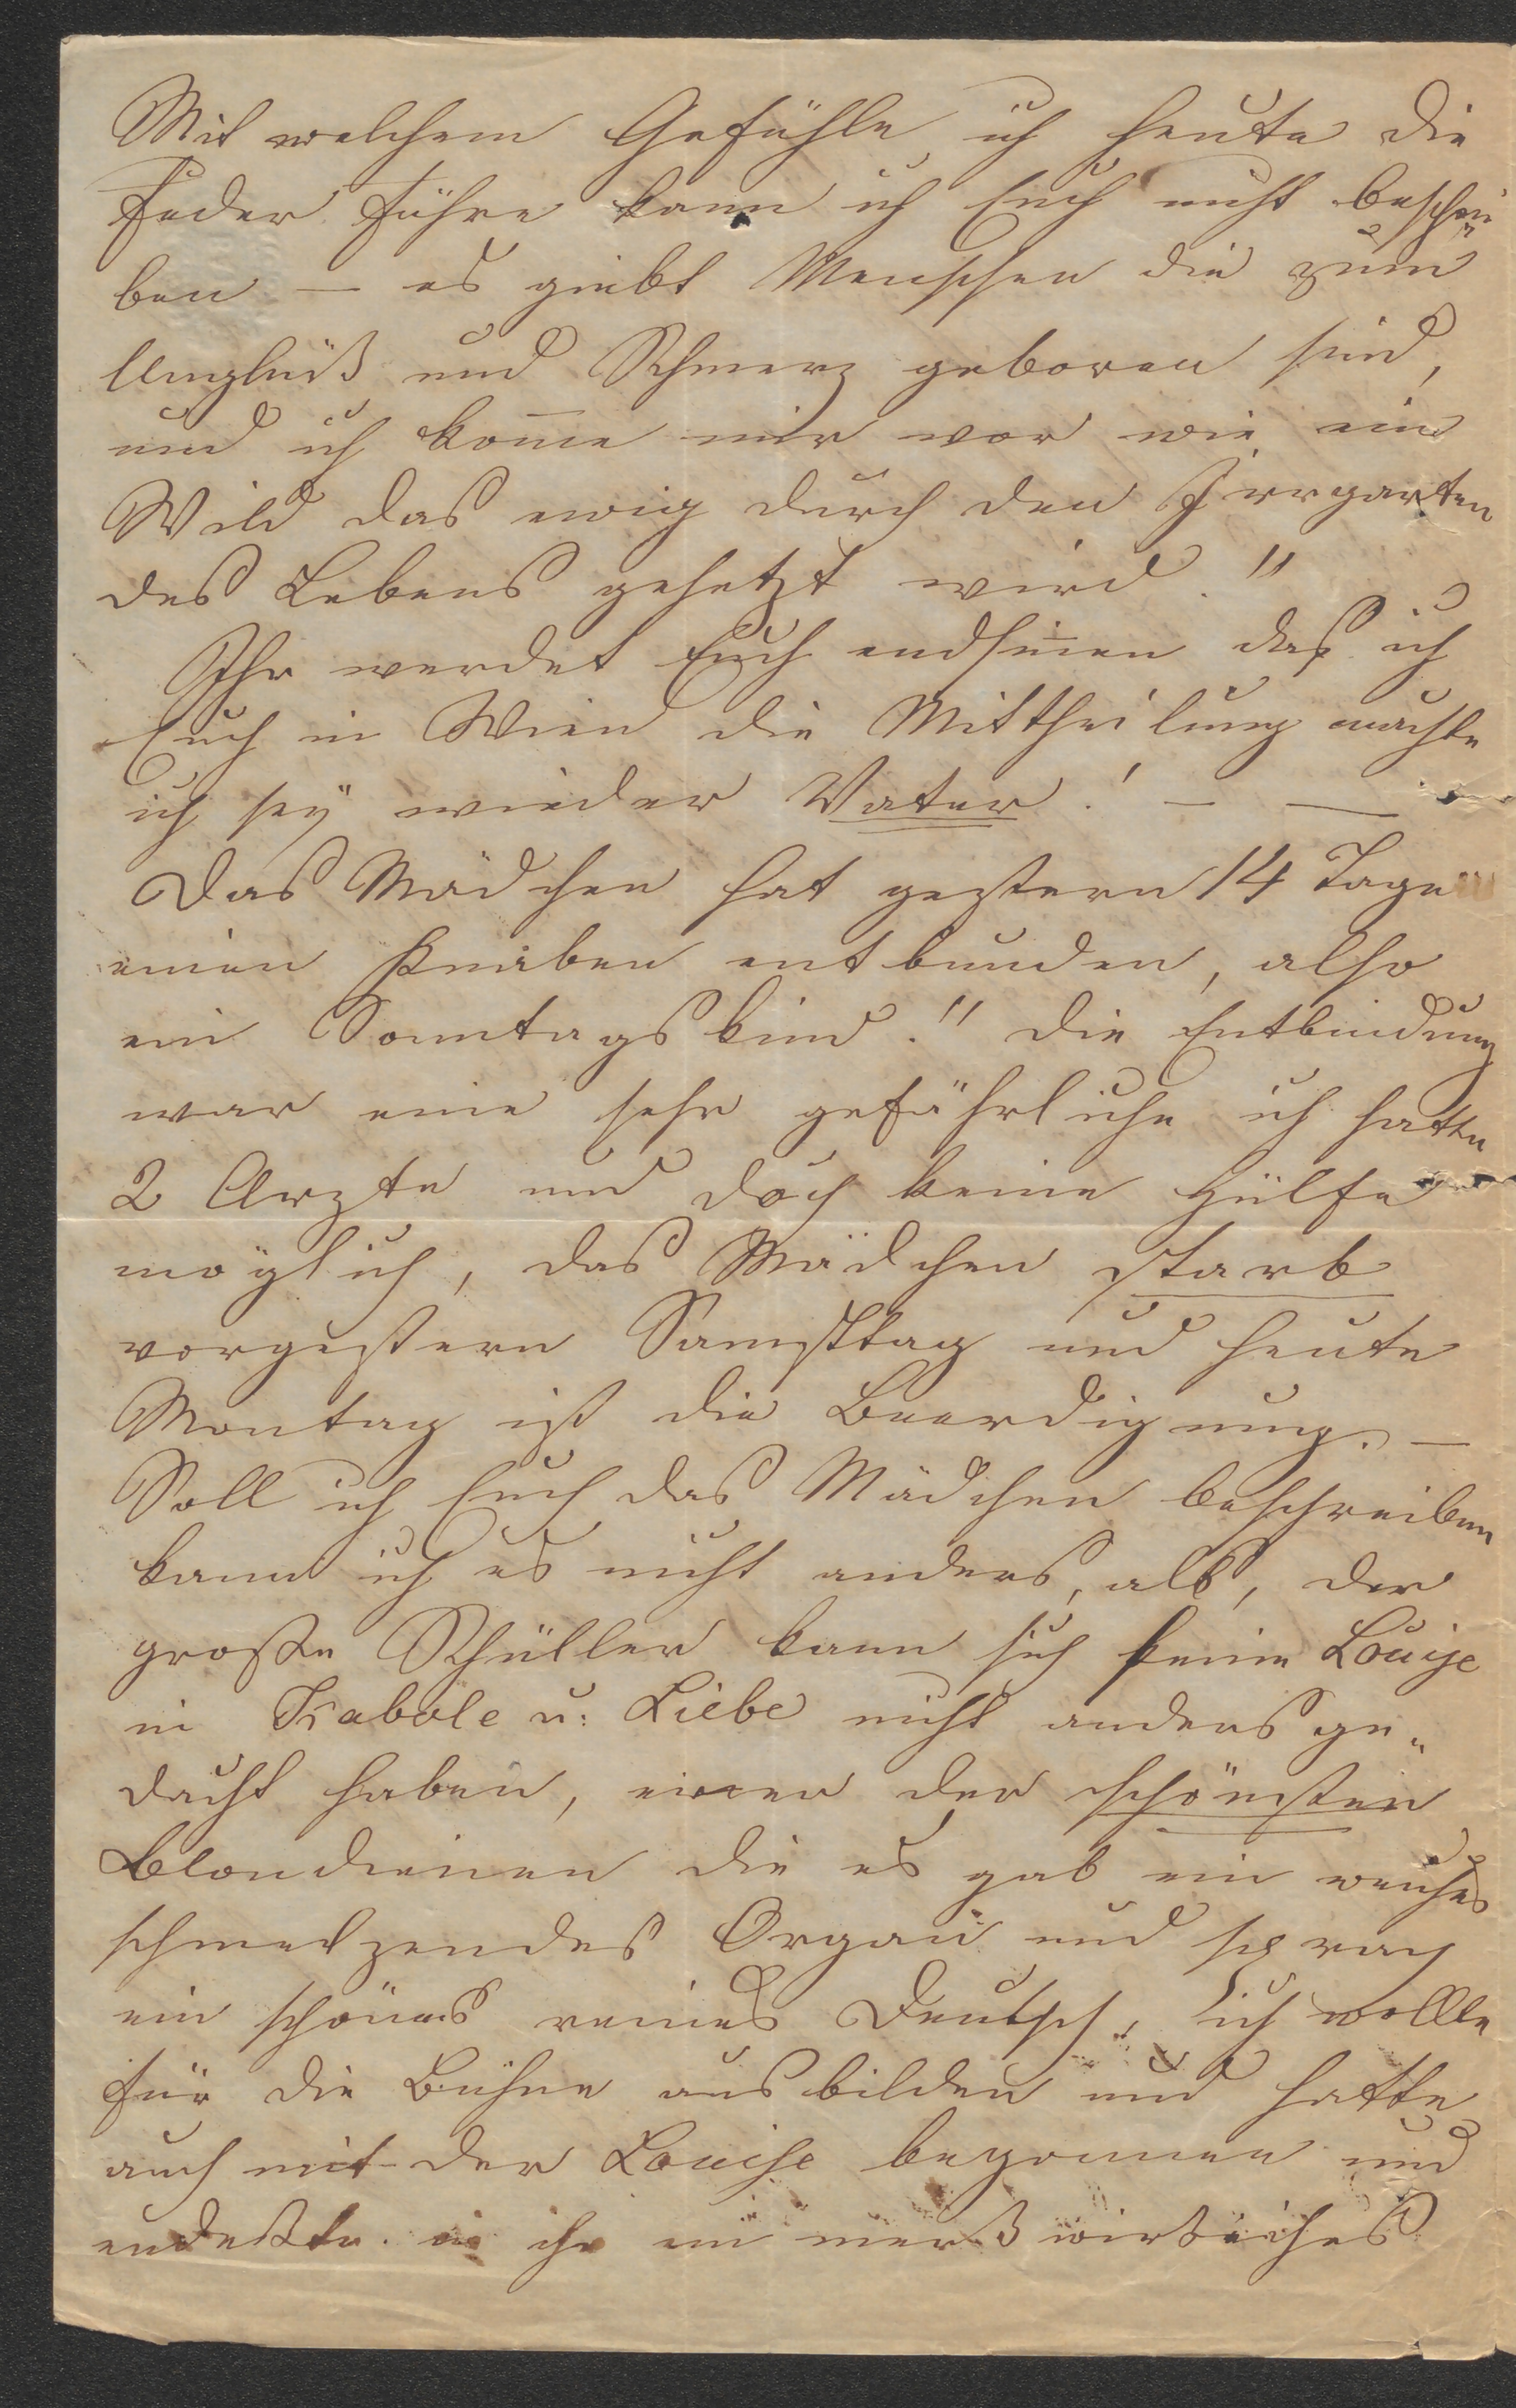 Mit welchem Gefühle ich heute die
Feder führe kann ich Euch nicht beschrei
ben — es giebt Menschen die zum
Unglück und Schmerz geboren sind,
und ich kom̅e mir vor wie ein
Wild das ewig durch den Irrgarten
des Lebens gehetzt wird!!
Ihr werdet Euch endsin̅en das ich
Euch in Wien die Mittheilung machte
ich seÿ wieder Vater! — —
Das Mädchen hat gestern 14 Tage
einen Knaben entbunden, also
ein Sonntagskind!! die Entbindung
war eine sehr gefährliche ich hatte
2 Ärzte und doch keine Hülfe
möglich, das Mädchen starb
vorgestern Samsttag und heute
Montag ist die Beerdigung. —
Soll ich Euch das Mädchen beschreiben
kann ich es nicht anders, als, der
große Schüller kann sich seine Louise
in Kabale u: Liebe nicht anders ge„
dacht haben, einer der schönsten
Blondienen die es gab ein weiches
schmelzendes Organ und sprach
ein schönes reines Deutsch, ich wollte
für die Bühne ausbilden und hatte
auch mit der Louise begonnen und
endeckte in ihr ein wirkliches